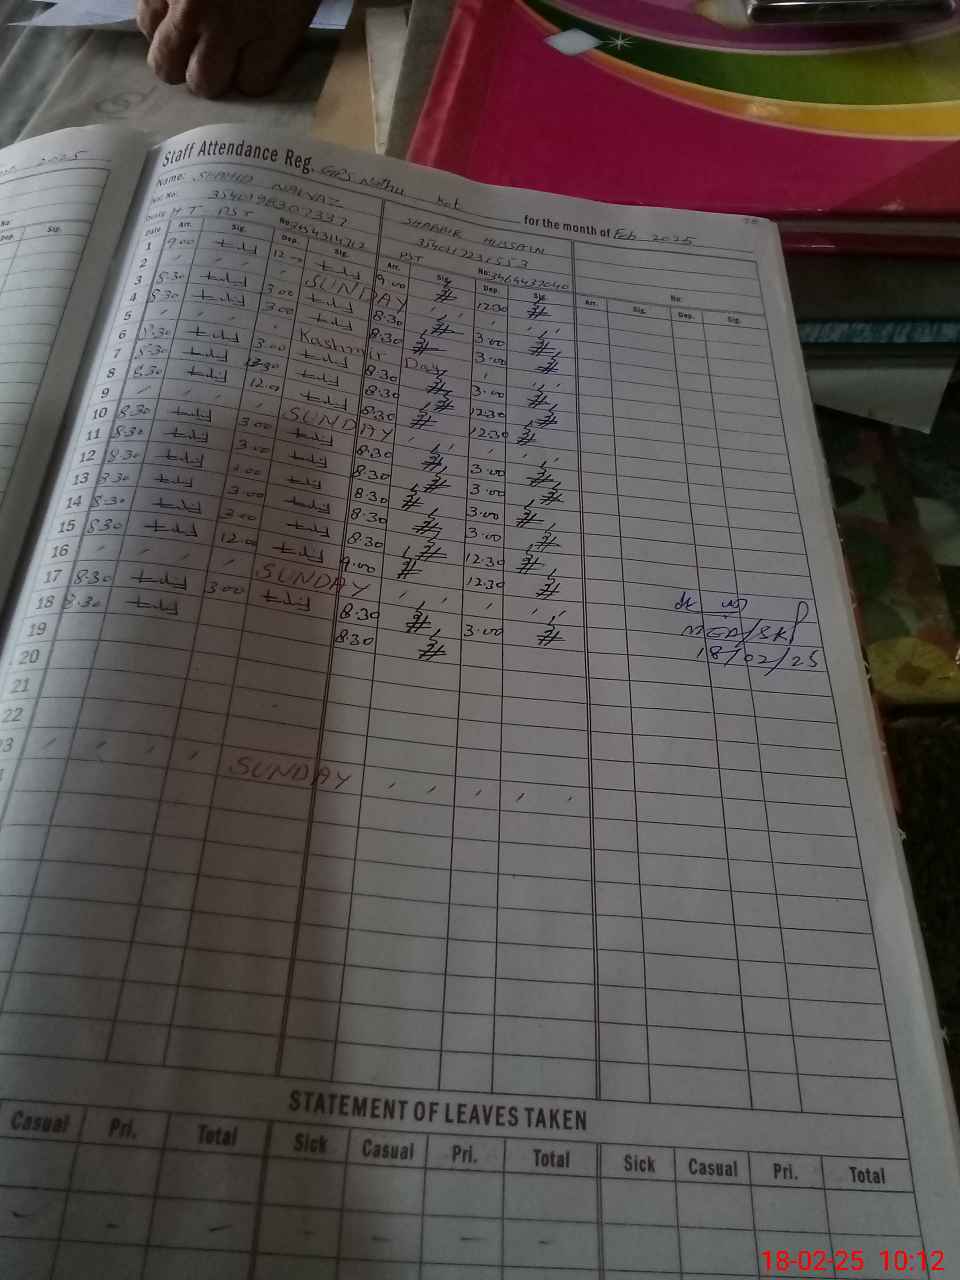 2025
Staff Attendance Reg. GPS Nathu Kot for the month of Feb 2025
Name: SHAHID NAWAZ SHABBIR HUSSAIN
3540198307337 3540117231553
H T PST No: PST No: 3464437040 No:
Date Arr. Sig. Dep. Sig. Arr. Sig. Dep. Sig. Arr. Sig. Dep. Sig.
1 9.00 9.00 12.30
2 SUNDAY
3 8.30 3.00 8.30 3.00
4 8.30 3.00 8.30 3.00
5 Kashmir Day
6 8.30 3.00 8.30 3.00
7 8.30 12.30 8.30 12.30
8 8.30 12.00 8.30 12.30
9 SUNDAY
10 8.30 3.00 8.30 3.00
11 8.30 3.00 8.30 3.00
12 8.30 3.00 8.30 3.00
13 8.30 3.00 8.30 3.00
14 8.30 8.30 12.30
15 8.30 12.00 9.00 12.30
16 SUNDAY
17 8.30 3.00 8.30 3.00
18 8.30 8.30
19
20
21
22
23 SUNDAY
18/02/25
STATEMENT OF LEAVES TAKEN
Casual Pri. Total Sick Casual Pri. Total Sick Casual Pri. Total
18-02-25 10:12